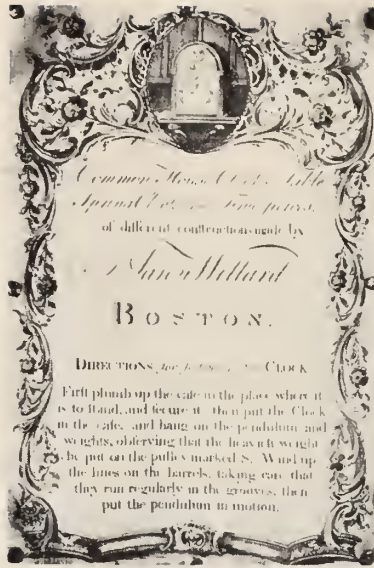 Common House Clocks, Table
Spring
of different constructions made by
Willard
BOSTON.
DIRECTIONS for CLOCK
First plumb up the case in the place where it
is to stand, and secure it then put the Clock
in the case, and hang on the pendulum and
weights, observing that the heaviest weight
be put on the pulley marked S. Wind up
the lines on the barrels, taking care that
they run regularly in the grooves, then
put the pendulum in motion.